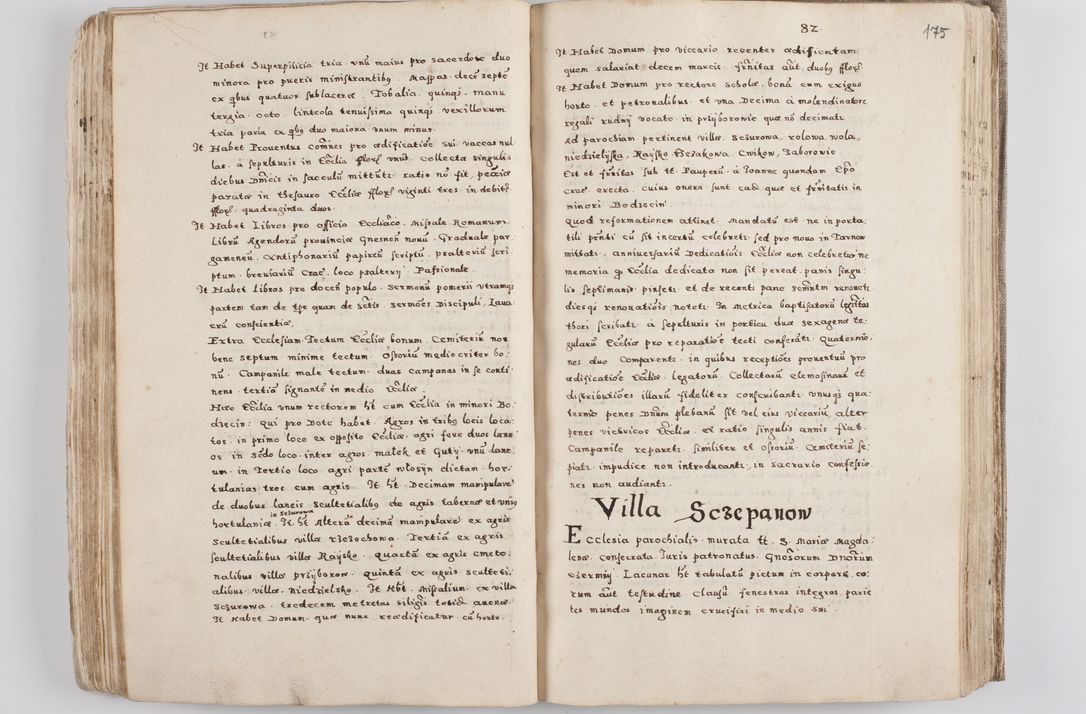 It Habet Superpilitia tria . vnũ maius pro sacerdote duo
minora pro pueris ministrantibꝫ . Mappas decẽ septẽ
ex qbus quatuor sublaceræ . Tobalia . quinqꝫ . manu
tergia . octo . linteola tenuissima quinqꝫ . vexillorum
tria paria ex qbꝫ duo maiora vnum minus .
It Habet Prouentus com̃nes pro ædificatiõe . sui . vaccas nul
las . à sepulturis in Ec̃clia fflorẽ vnũ . Collecta singulis
diebus Dñicis in sacculũ mittũtꝛ . ratio nũ fit , pecũiæ
paratæ in thesauro Ec̃cliæ fflorẽ viginti tres . in debitꝭ
fflorẽ . quadraginta duos .
It Habet Libros pro officio Eccliaco . Missale Romanum .
Librũ Agendorũ prouinciæ Gnesnen nouũ . Graduale par
gameneũ . Antiphonariũ papireũ scriptũ . psalteriũ scri
ptum . breuiariũ Crac̃ . loco psalterij . Passionale .
It Habet Libros pro docẽn populo . Sermonũ pomerij vtramqꝫ
partem tam de tp̃e quam de Sc̃tis . sermões Discipuli . Laua
crũ conscientiæ .
Extra Ecclesiam . Tectum Ec̃cliæ bonum . Cemiteriũ non
bene septum minime tectum . Ossoriũ mediocriter bo :
nũ . Campanile male tectum . duas campanas in se conti
nens . tertiã signantẽ in medio Ec̃cliæ .
Hæc Ec̃clia vnum rectorem ht̃ cum Ec̃clia in minori Bo
dzecin : qui pro Dote habet . Agros in tribꝫ locis loca
tos . in primo loco ex opposito Ec̃cliæ . agri fere duos lane
os . in Sc̃do loco . inter agros . malek et Gutÿ . vnũ lane
um . in Tertio loco agri partẽ wlosÿn dictam . hor :
tulanias tres cum agris . It ht̃ . Decimam manipularẽ
de duobus laneis scultetialibꝫ de agris tabernæ et vniꝫ
hortulaniæ in Sczurowa . It . ht̃ Alterã decimã manipularẽ ex agris
scultetialibus villæ rzezochowa . Tertiã ex agris
scultetialibus villæ Raÿsko . Quartã ex agris cmeto :
nalibus villæ prziiborow . quintã ex agris sculteti
alibus . villæ . niedzielsko . It Hbt̃ . Missalium . ex villa
Sczurowa . tredecem metretas siliginis totid auenæ .
It Habet Domum . quæ nunc reædificatur . cũ horto .
82 . 175
It Habet Domum pro viccario recenter ædificatam
quem salariat decem marcis . fr̃nitas aũt duobꝫ fflorẽ
It Habet Domum pro rectore scholæ . bonã cum exiguo
horto . et petronalibus . et vna Decima à molendinatore
regali rudnÿ vocato . in prziiborowie quæ nõ decimatꝛ
Ad parochiam pertinent villæ . Sczurowa , rolowa wola ,
niedzielÿska , Raÿsko rzezakowa . Cwikow , Zaborowie .
Est et fr̃nitas sub tt . Pauperũ . à Joanne quondam Ep̃o
Crac̃ . erecta . cuius onera sunt ead quæ et fr̃nitatis in
minori Bodzecin .
Quod reformationem attinet . Mandatũ est ne in porta :
tili pr̃nti cũ sit incertũ celebretꝛ sed pro nouo in Tarnow
mittatꝛ . anniuersariũ Dedicatiõis Ec̃cliæ non celebretꝛ ne
memoria qꝫ Ec̃clia dedicata non sit pereat . panis singu :
lis septimanis pinsetꝛ et de recenti pane sacr̃mtm renouetꝛ
diesqꝫ renouatiõis notetꝛ . In metrica baptisatorũ legitimitas
thori scribatꝛ . à sepulturis in porticu duæ sexagenæ te :
gularũ Ec̃cliæ pro reparatiõe tecti conferãtꝛ . Quaternio :
nes duo Comparentꝛ . in quibus receptiões prouentuũ pro
ædificatiõe Ec̃cliæ . legatorũ . Collectarũ Elemosinarũ et
distributiões illarũ fideliter conscribantꝛ . vnusqꝫ qua :
ternio penes Dñum plebanũ sit vel eius viccariũ . alter
penes victricos Ec̃cliæ . et ratio singulis annis fiat .
Campanile reparetꝛ . similiter et Ossoriũ . Cemiteriũ se :
piatꝛ . impudicæ non introducantꝛ . in sacrario confessio
nes non audiantꝛ .
Villa Sczepanow
Ecclesia parochialis . murata tt . S. Mariæ Magda :
lenæ . consecrata . Juris patronatus . Gnosorum Dnorum
Czermnÿ . Lacunar ht̃ tabulatũ pictum in corpore . co :
rum aũt testudine . Clausũ . fenestras integras , parie
tes mundos . imaginem crucifixi in medio sui .